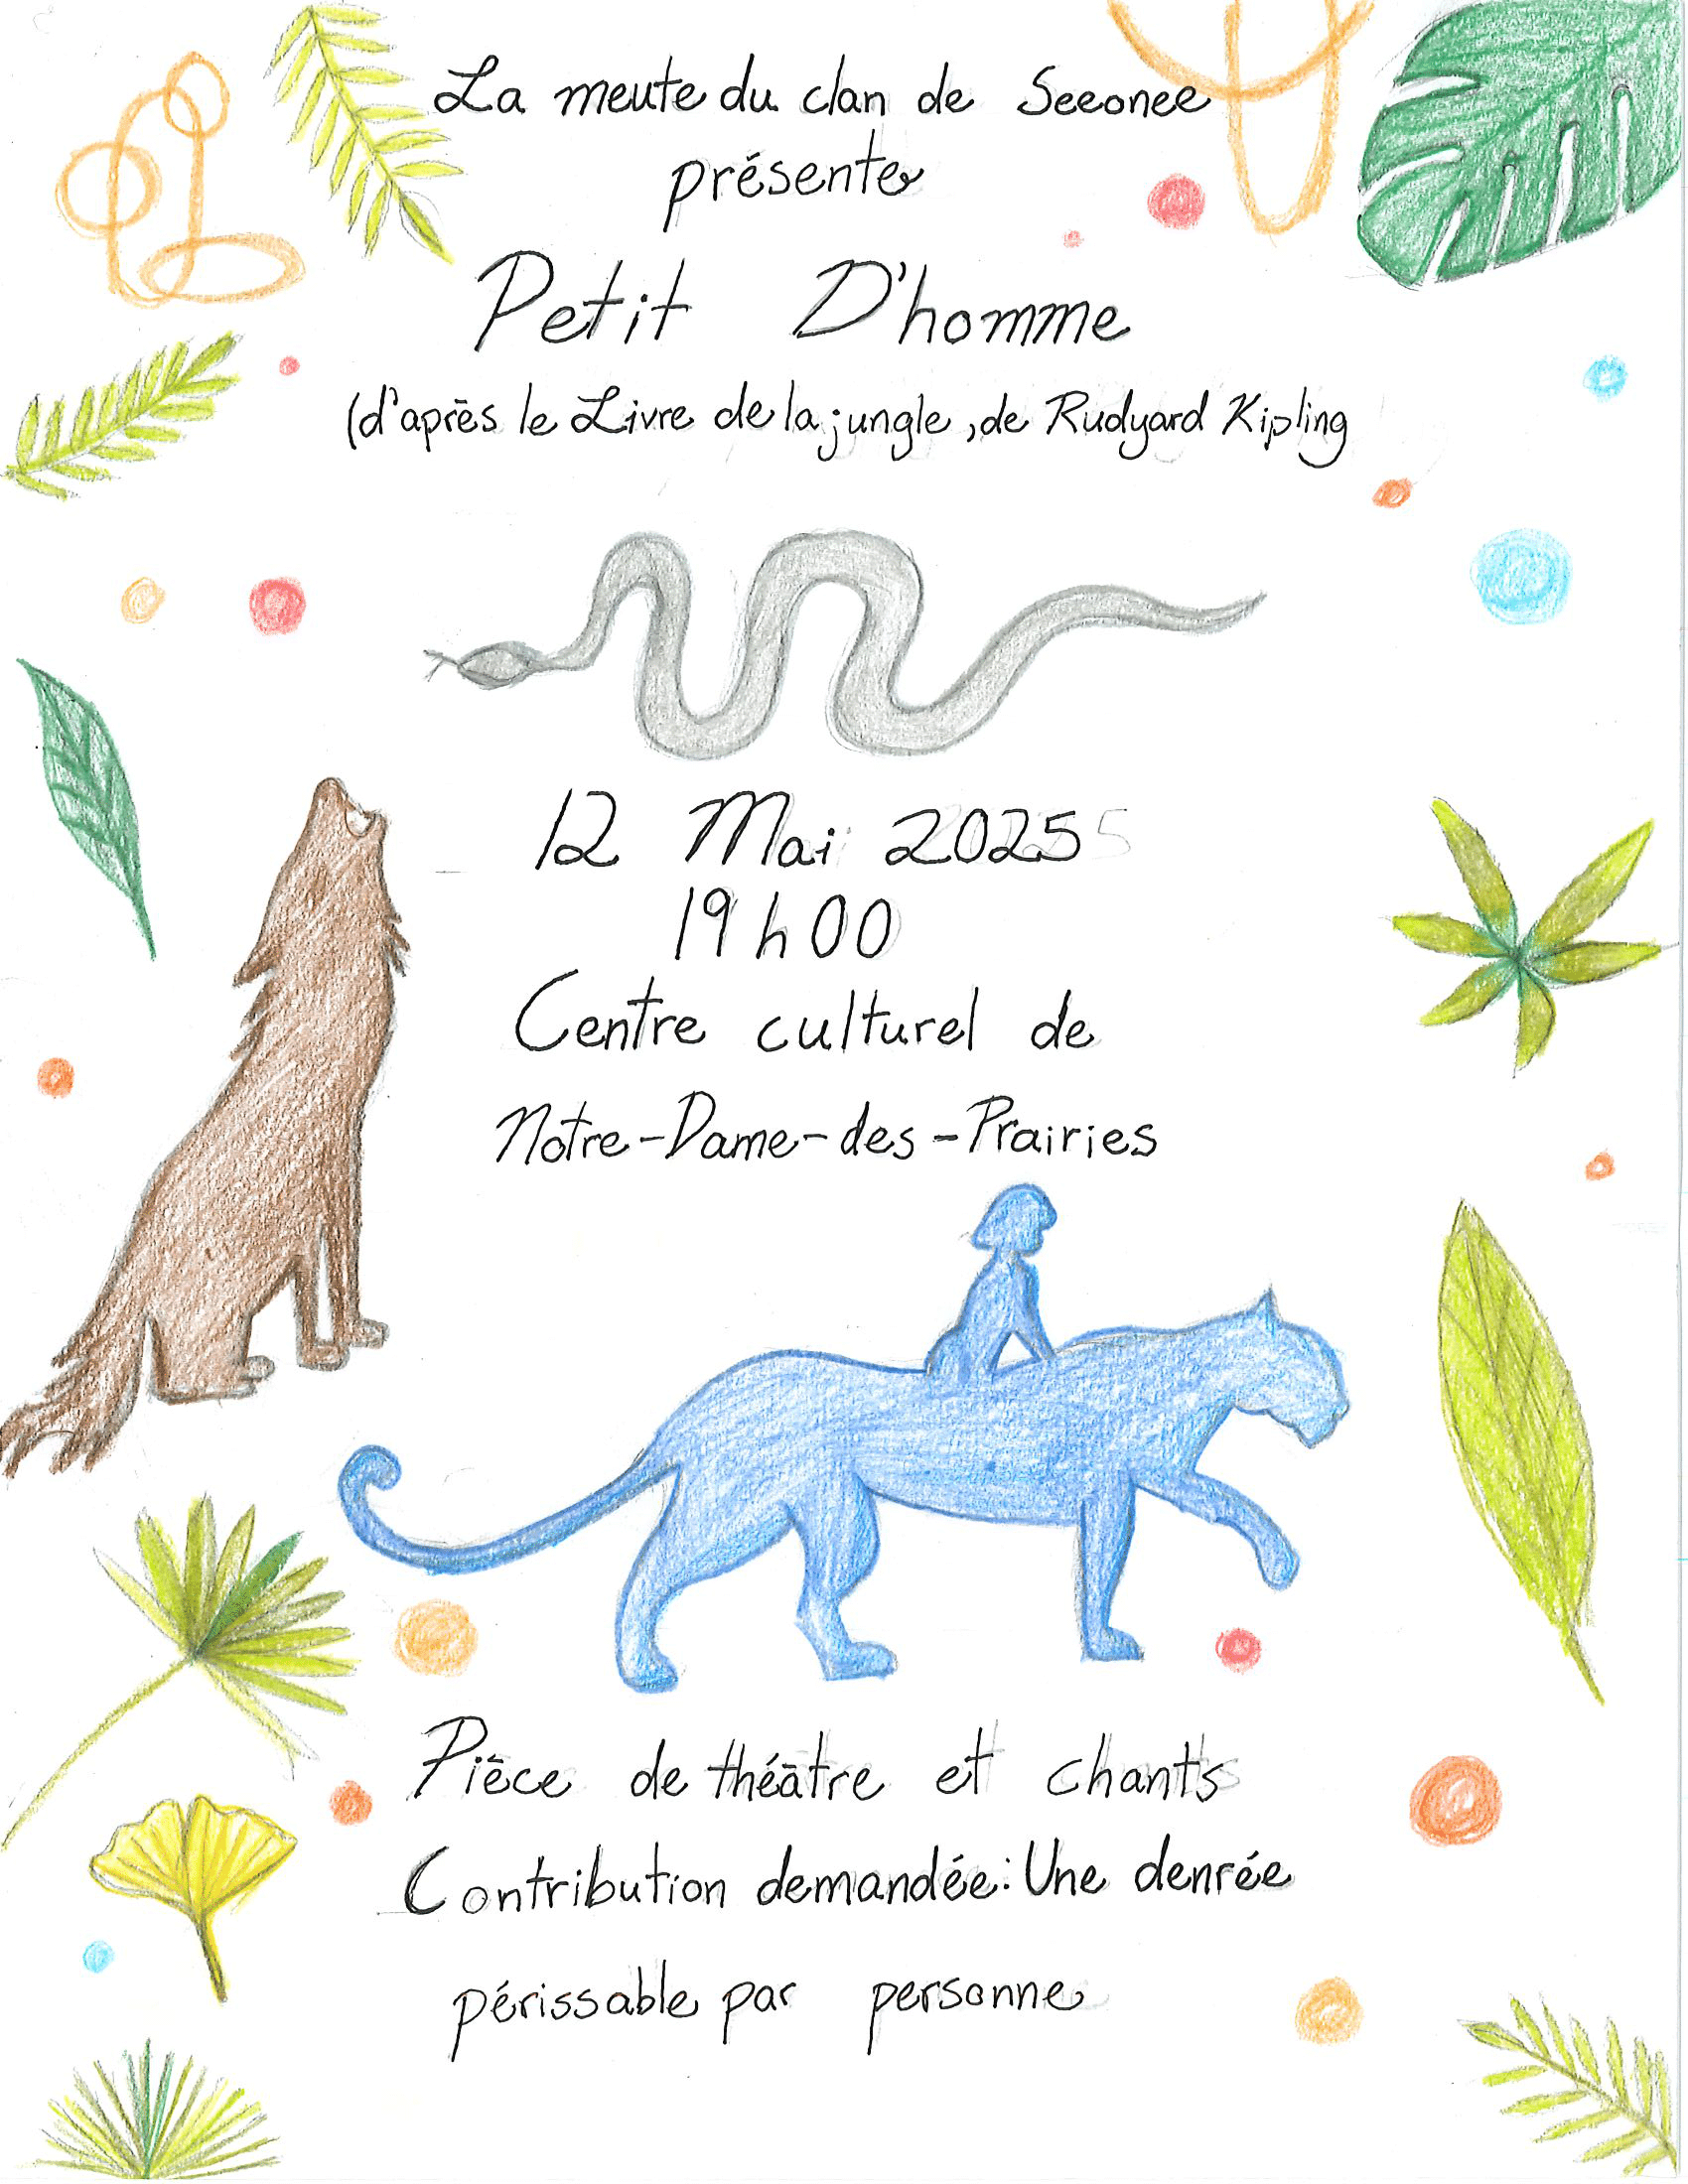 La meute du clan de Seeonee
présente
Petit D'homme
(d'après le Livre de la jungle, de Rudyard Kipling
12 Mai 2025
19h00
Centre culturel de
Notre-Dame-des-Prairies
Pièce de théâtre et chants
Contribution demandée: Une denrée
périssable par personne